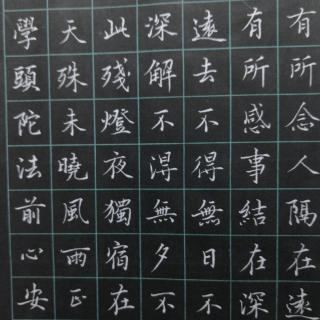 有所念人隔在遠
有所感事結在深
遠去不得無日不
深解不淂無夕不
此殘燈夜獨宿在
天殊未曉風雨正
學頭陀法前心安